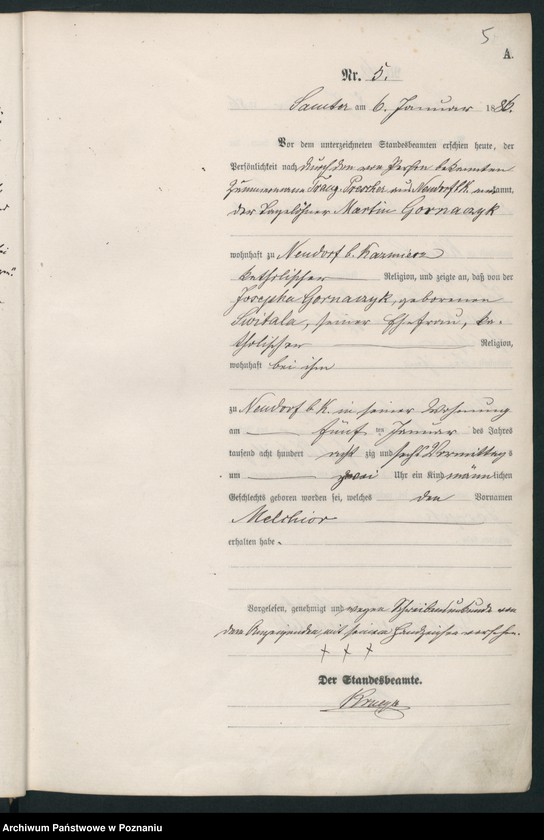 5
A.
Nr. 5.
Samter am 6. Januar 1886.
Vor dem unterzeichneten Standesbeamten erschien heute, der
Persönlichkeit nach durch den von Person bekannten
Zimmermann Franz aus Neudorf b/K. anerkannt,
der Tagelöhner Martin Gornaczyk
wohnhaft zu Neudorf b. Kazmierz
katholischer Religion, und zeigte an, daß von der
Josepha Gornaczyk, geborenen
Switala, seiner Ehefrau, ka-
tholischer Religion,
wohnhaft bei ihm
zu Neudorf b. K. in seiner Wohnung
am fünf ten Januar des Jahres
tausend acht hundert acht zig und sechs Vormittags
um zwei Uhr ein Kind männlichen
Geschlechts geboren worden sei, welches den Vornamen
Melchior
erhalten habe.
Vorgelesen, genehmigt und wegen Schreibensunkunde von
dem Anzeigenden mit seinem Handzeichen versehen.
+ + +
Der Standesbeamte.
Archiwum Państwowe w Poznaniu